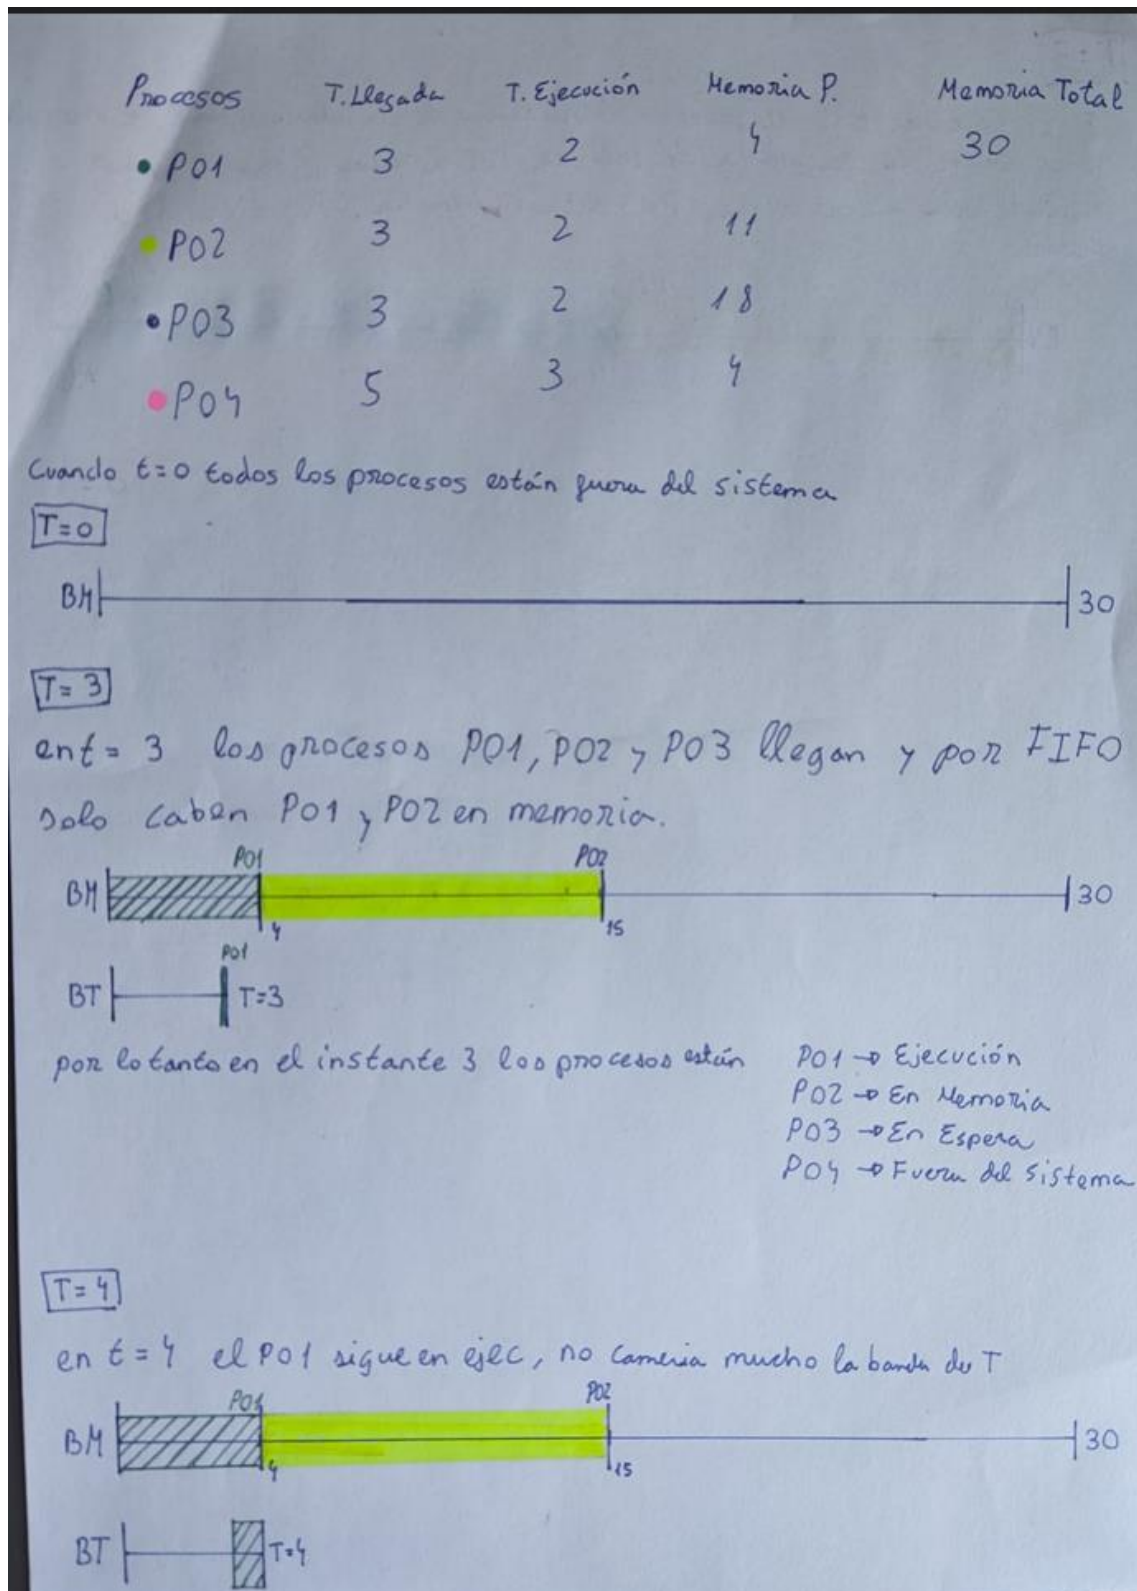 Procesos T. Llegada T. Ejecución Memoria P. Memoria Total
P01 3 2 4 30
P02 3 2 11
P03 3 2 18
P04 5 3 4
Cuando t=0 todos los procesos están fuera del sistema
T=0
BM 30
T=3
en t=3 los procesos P01, P02 y P03 llegan y por FIFO
solo caben P01 y P02 en memoria.
P01 P02
BM 30
4 15
P01
BT T=3
por lo tanto en el instante 3 los procesos están P01 → Ejecución
P02 → En Memoria
P03 → En Espera
P04 → Fuera del sistema
T=4
en t=4 el P01 sigue en ejec, no mucho la banda de T
P01 P02
BM 30
4 15
BT T=4